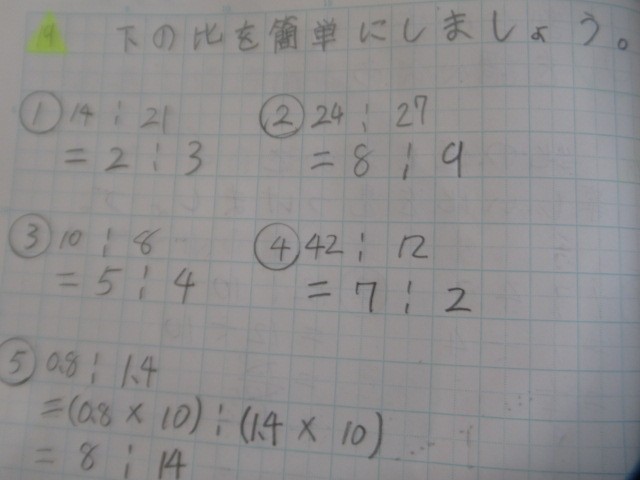 9 下の比を簡単にしましょう。
① 14 : 21 ② 24 : 27
= 2 : 3 = 8 : 9
③ 10 : 8 ④ 42 : 12
= 5 : 4 = 7 : 2
⑤ 0.8 : 1.4
= (0.8 × 10) : (1.4 × 10)
= 8 : 14